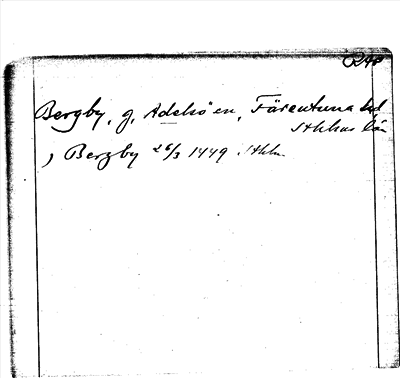 RAP
Bergby, g, Adelsön, Färentuna hd,
Sthlms län
) Bergby 26/3 1449. Sthlm.